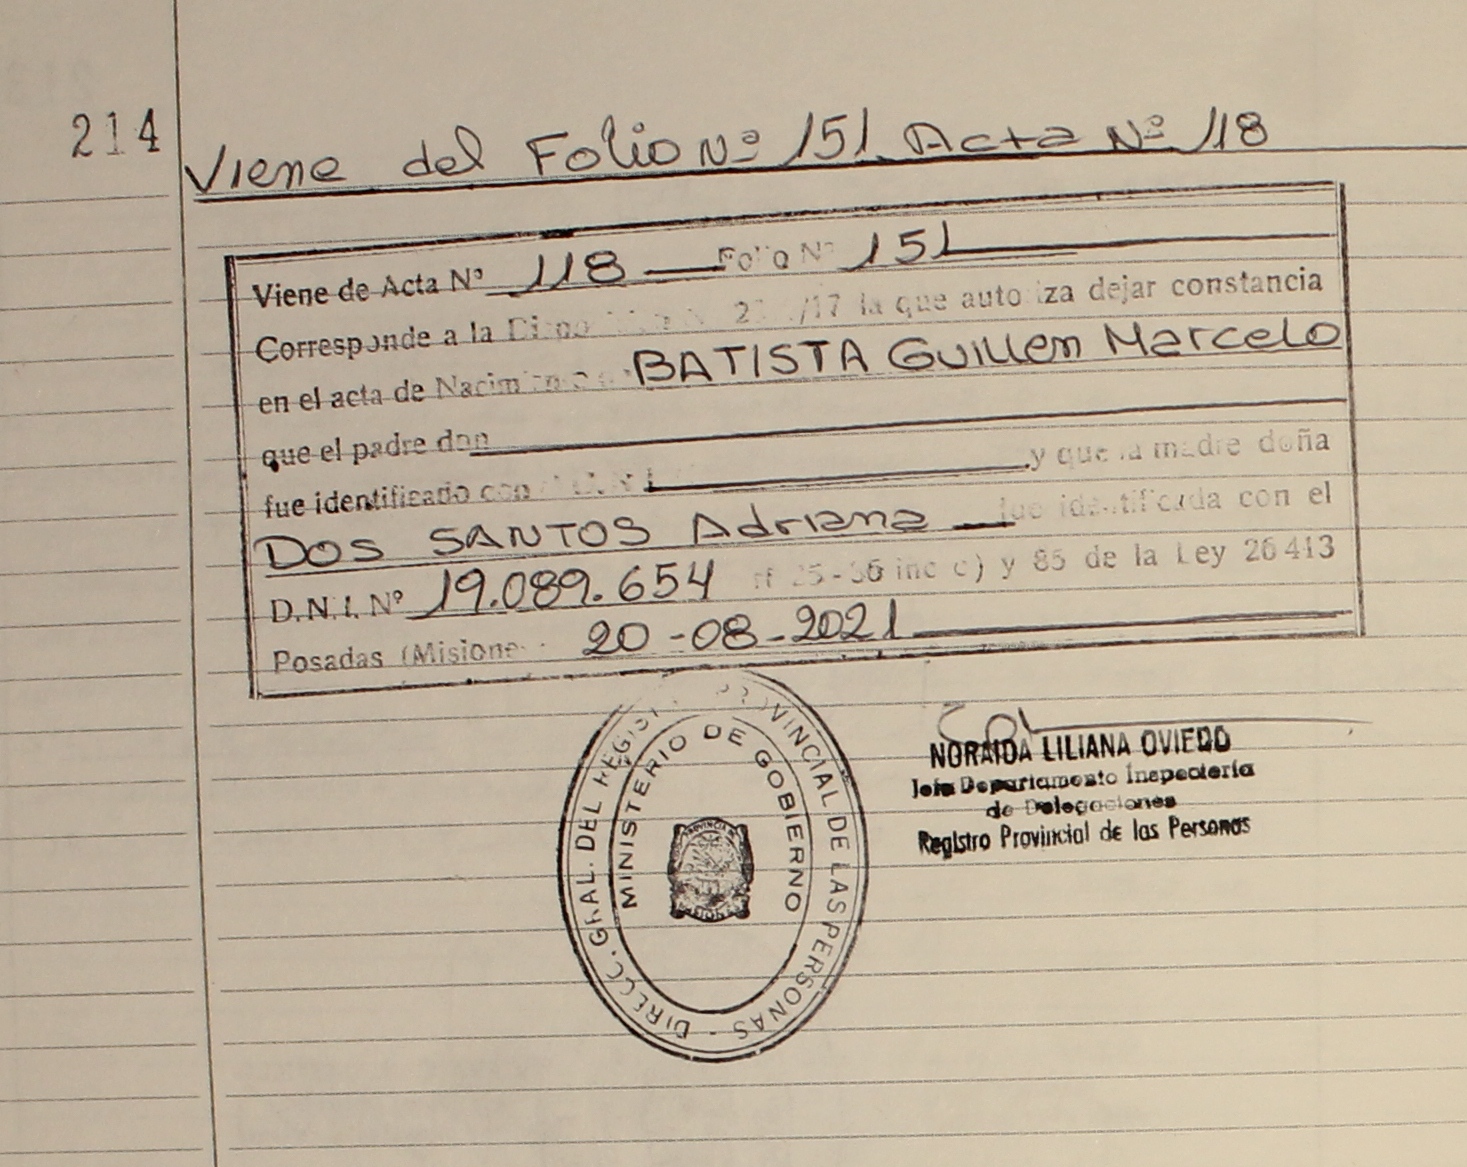 214
Viene del Folio Nº 151 Acta Nº 118
Viene de Acta Nº 118 Folio Nº 151
Corresponde a la /17 la que autoriza dejar constancia
en el acta de Nacimiento BATISTA Guillem Marcelo
que el padre don
fue identificado con y que la madre doña
DOS SANTOS Adriana fue identificada con el
D.N.I. Nº 19.089.654 inc c) y 85 de la Ley 26 413
Posadas (Misiones 20-08-2021
DIRECC. GRAL. DEL REGISTRO PROVINCIAL DE LAS PERSONAS -
MINISTERIO DE GOBIERNO
NORAIDA LILIANA OVIEDO
Jefa Departamento Inspectoría
de Delegaciones
Registro Provincial de las Personas